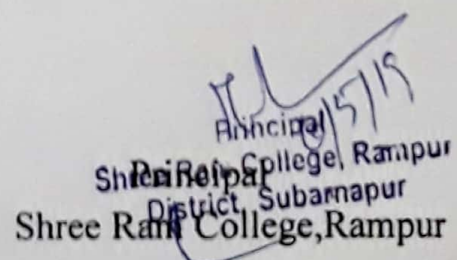 Principal
Shree Ram College, Rampur
District, Subarnapur
Principal
Shree Ram College,Rampur